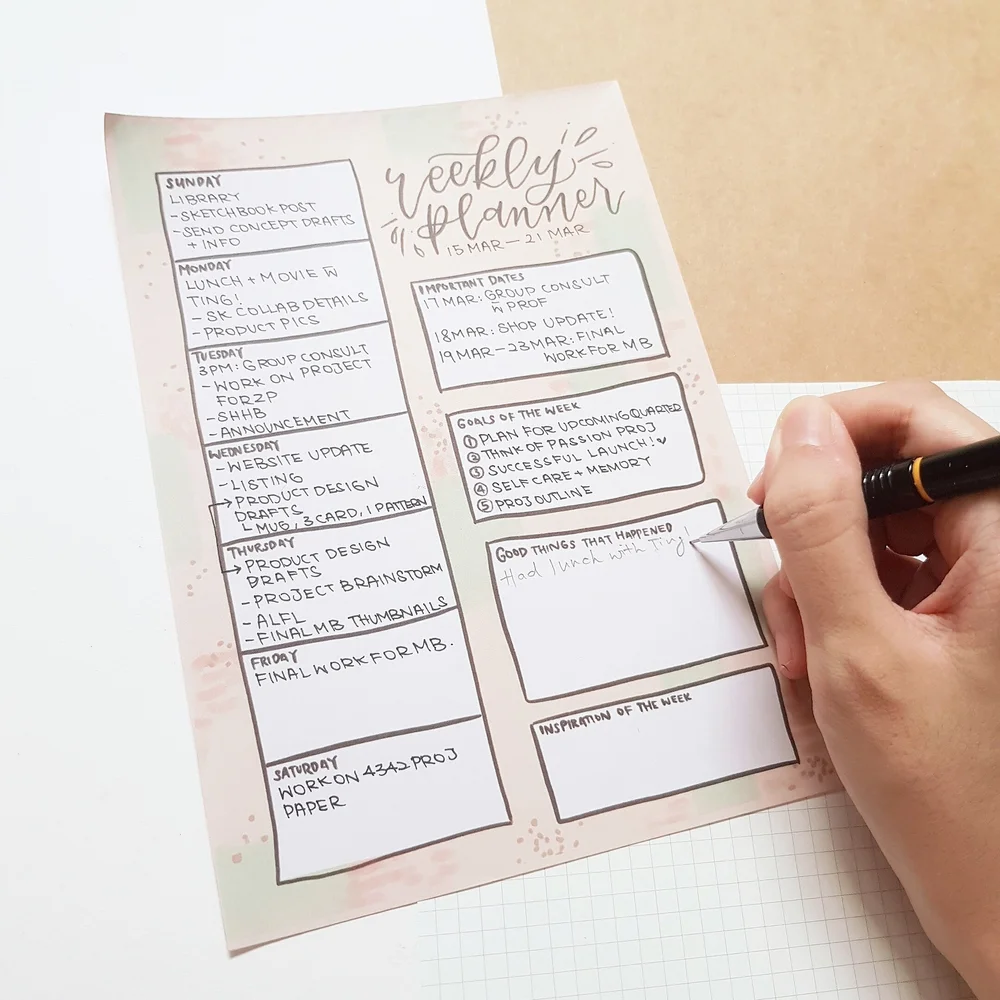 weekly
planner
15 MAR — 21 MAR
SUNDAY
LIBRARY
-SKETCHBOOK POST
-SEND CONCEPT DRAFTS
+ INFO
MONDAY
LUNCH + MOVIE W̅
TING!
- SK COLLAB DETAILS
- PRODUCT PICS
TUESDAY
3PM: GROUP CONSULT
- WORK ON PROJECT
FOR ZP
- SHHB
- ANNOUNCEMENT
WEDNESDAY
- WEBSITE UPDATE
- LISTING
→ PRODUCT DESIGN
DRAFTS
L MUG, 3 CARD, 1 PATTERN
THURSDAY
→ PRODUCT DESIGN
DRAFTS
- PROJECT BRAINSTORM
- ALFL
- FINAL MB THUMBNAILS
FRIDAY
FINAL WORK FOR MB.
SATURDAY
WORK ON 4342 PROJ
PAPER
IMPORTANT DATES
17 MAR: GROUP CONSULT
W̅ PROF
18 MAR: SHOP UPDATE!
19 MAR - 23 MAR: FINAL
WORK FOR MB
GOALS OF THE WEEK
① PLAN FOR UPCOMING QUARTER
② THINK OF PASSION PROJ
③ SUCCESSFUL LAUNCH! ♥
④ SELF CARE + MEMORY
⑤ PROJ OUTLINE
GOOD THINGS THAT HAPPENED
Had lunch with Ting!
INSPIRATION OF THE WEEK